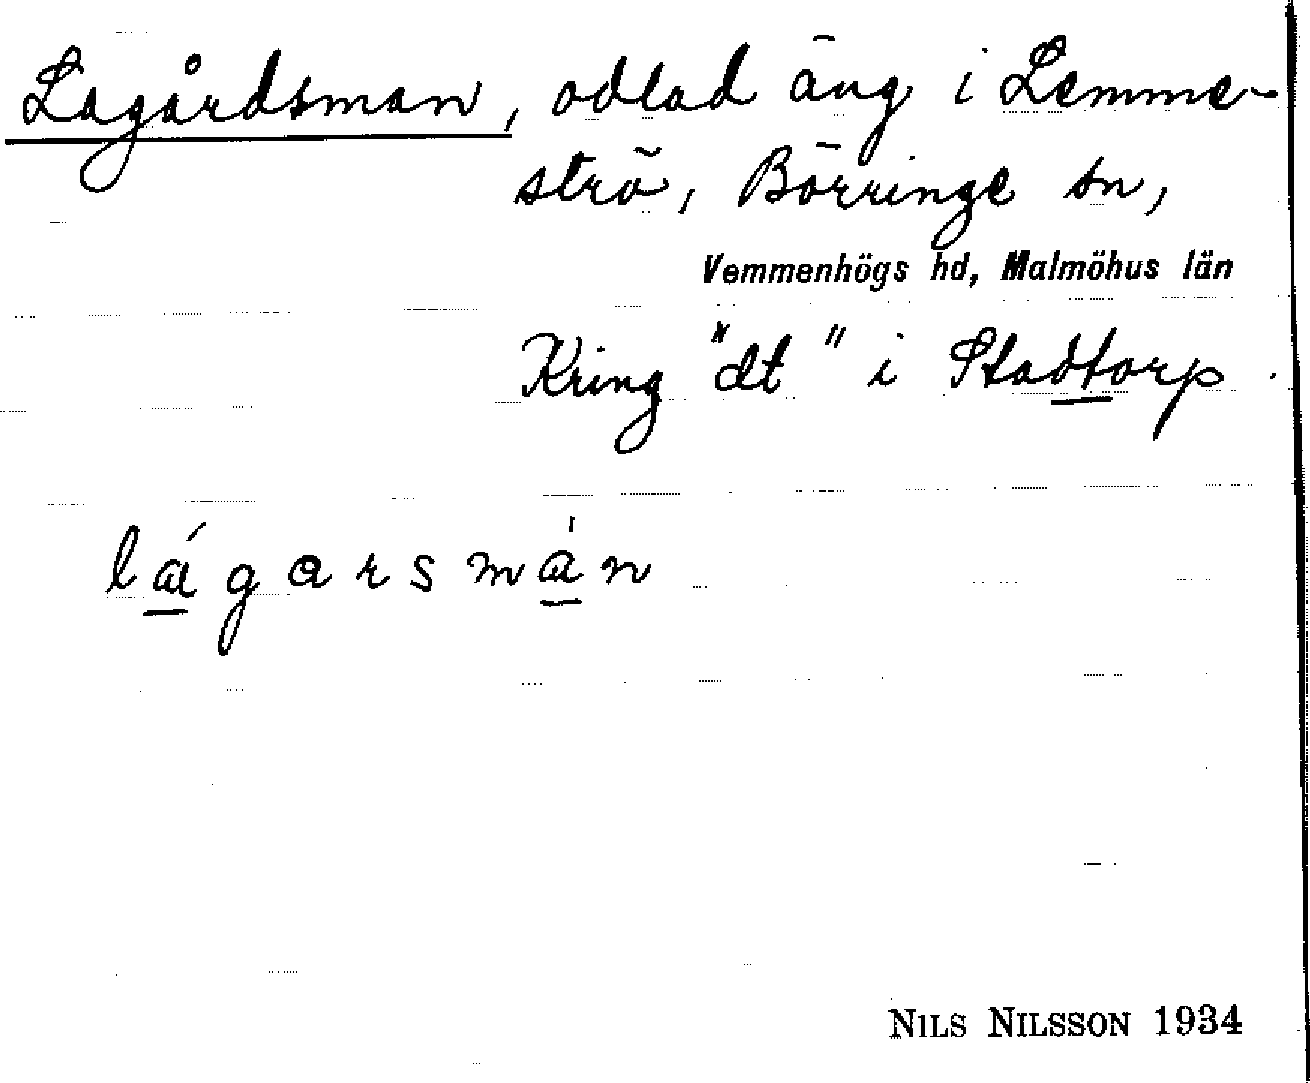 Lagårdsman, odlad äng i Lemme-
strö, Börringe sn,
Vemmenhögs hd, Malmöhus län
Kring "dt" i Stadtorp.
lágarsmán
NILS NILSSON 1934